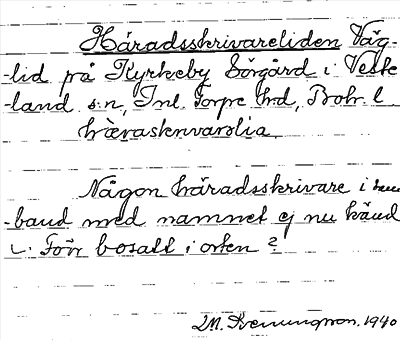 Häradsskrivareliden Väg-
-lid på Kyrkeby Sörgård i Veske
-land s:n, Inl. Torpe hd, Boh. l
hæraskrɩvarolia
Någon häradsskrivare i sam
-band med namnet ej nu känd
Förr bosatt i orten ?
1940